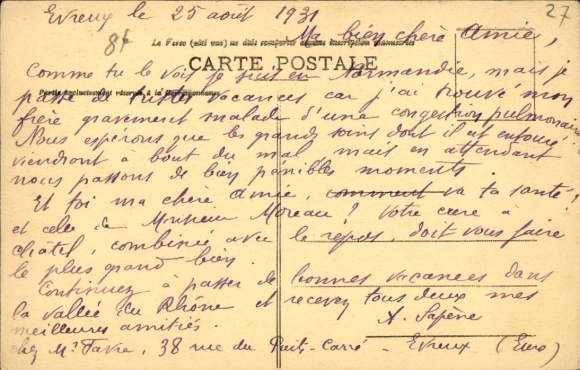 Evreux le 25 août 1931
27
84
Ma bien chère Amie,
Le Verso (côté vue) ne doit comporter aucune inscription manuscrite
CARTE POSTALE
Comme tu le vois je suis en Normandie, mais je
Partie exclusivement réservée à la Correspondance
passe de tristes vacances car j'ai trouvé mon
frère gravement malade d'une congestion pulmonaire.
Nous espérons que les grands soins dont il est entouré
viendront à bout du mal mais en attendant
nous passons de bien pénibles moments.
Et toi ma chère Amie, comment va ta santé ?
et celle de Monsieur Moreau ? Votre cure à
Châtel, combinée avec le repos, doit vous faire
le plus grand bien.
Continuez à passer de bonnes vacances dans
la vallée du Rhône et recevez tous deux mes
meilleures amitiés.
A.
chez Mr Favre, 38 rue du Puits-Carré - Evreux (Eure)